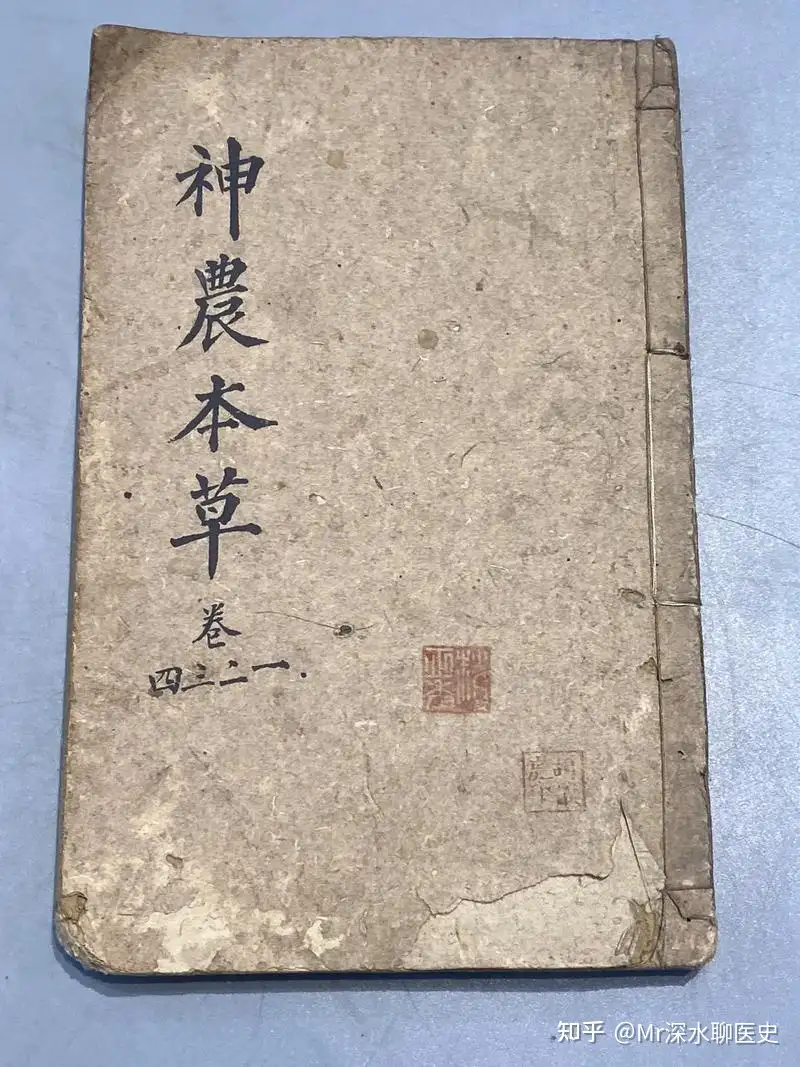 神農本草
卷
一二三四
知乎 @Mr深水聊医史